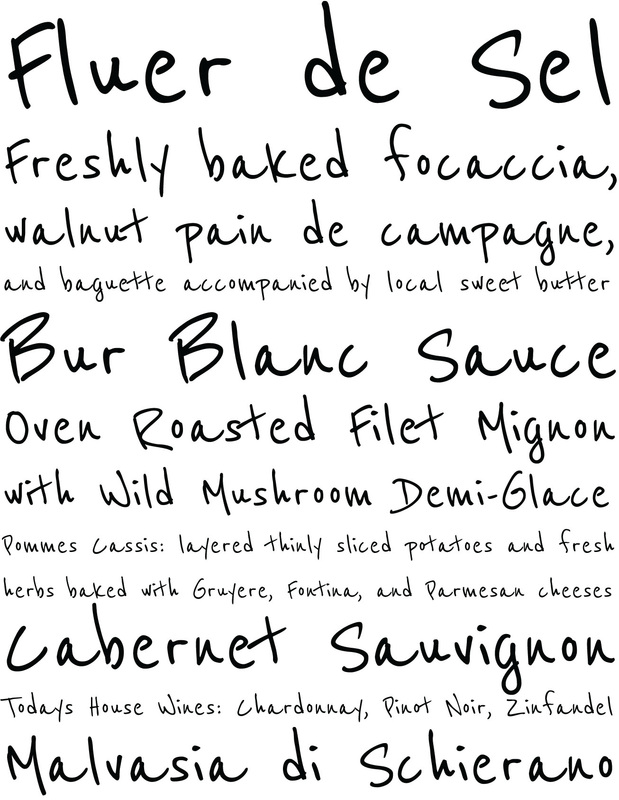 Fluer de Sel
Freshly baked focaccia,
walnut pain de campagne,
and baguette accompanied by local sweet butter
Bur Blanc Sauce
Oven Roasted Filet Mignon
with Wild Mushroom Demi-Glace
Pommes Cassis: layered thinly sliced potatoes and fresh
herbs baked with Gruyere, Fontina, and Parmesan cheeses
Cabernet Sauvignon
Todays House Wines: Chardonnay, Pinot Noir, Zinfandel
Malvasia di Schierano